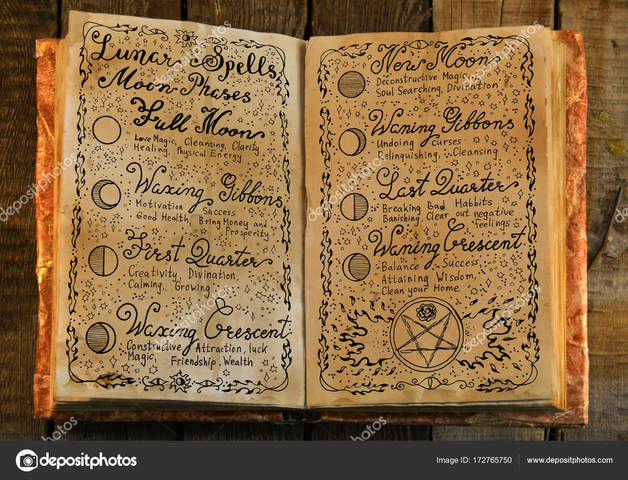 Lunar Spells
Moon Phases
Full Moon
Love Magic, Cleansing, Clarity
Healing, Physical Energy
Waxing Gibbons
Motivation Success
Good Health Bring Money and
Prosperity
First Quarter
Creativity, Divination,
Calming, Growing
Waxing Crescent
Constructive Attraction, luck
Magic, Friendship, Wealth
New Moon
Deconstructive Magic,
Soul Searching, Divination
Waning Gibbons
Undoing Curses
Relinquishing, Cleansing
Last Quarter
Breaking Bad Habbits
Banishing Clear out negative
feelings
Waning Crescent
Balance Success,
Attaining Wisdom,
Clean your Home
depositphotos
Image ID: 172765750
www.depositphotos.com